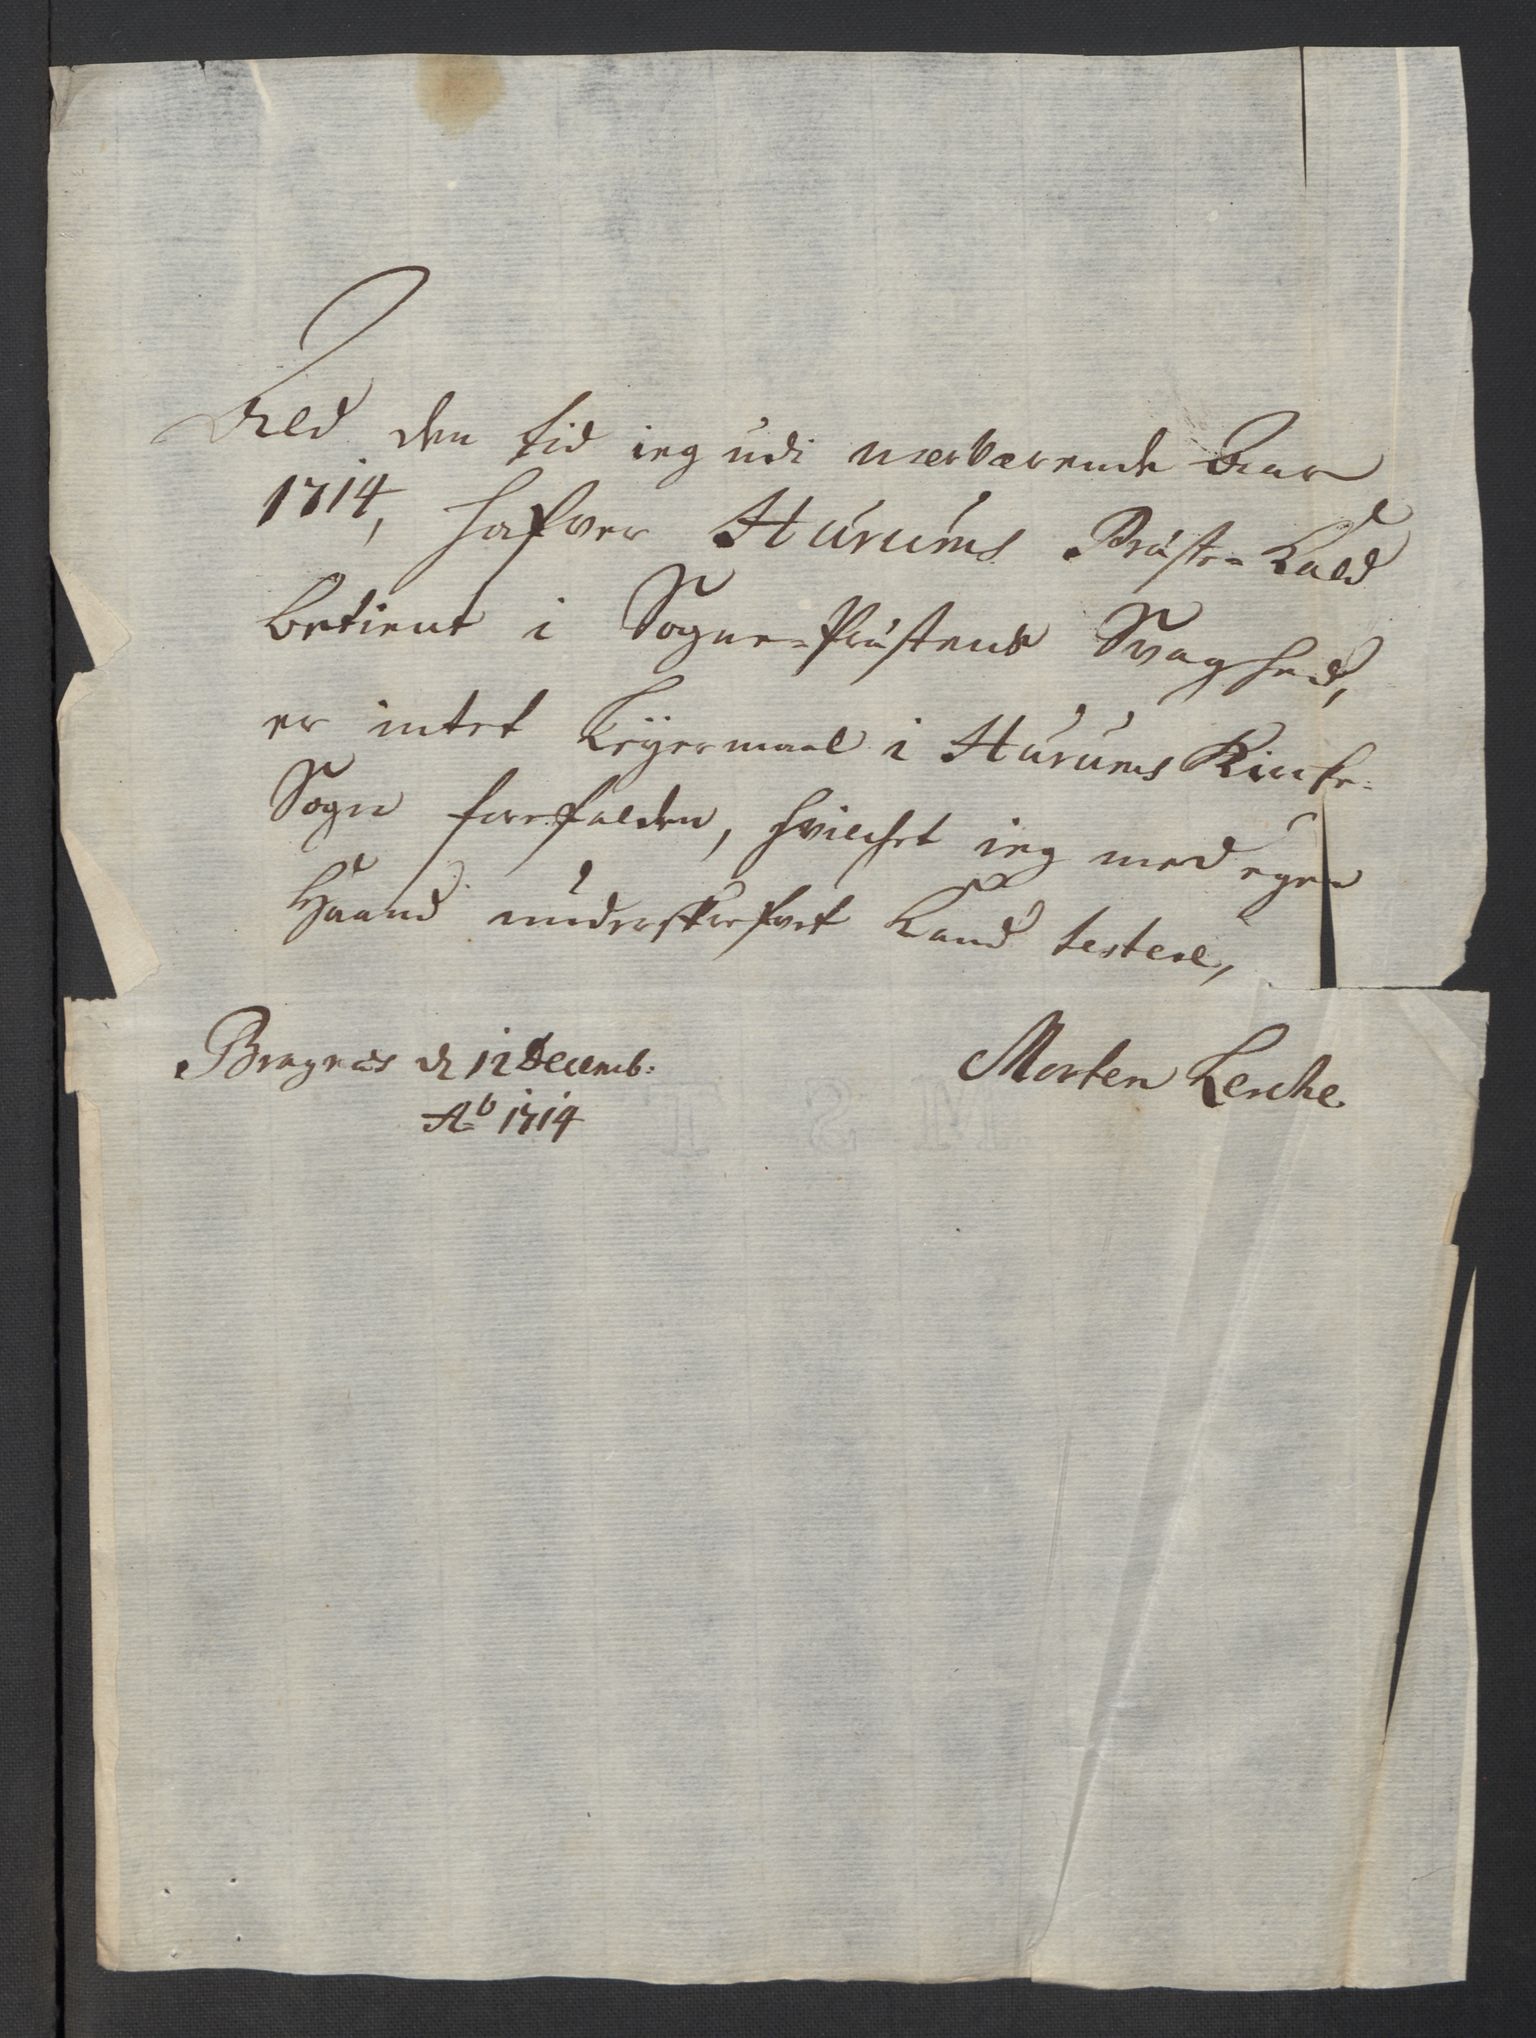 Ald den tid ieg udi nærværende Aar
1714, hafver Hurums Præste-Kald
betient i Sogne-Præstens Svaghed,
er intet Leyermaal i Hurums Kirke-
Sogn forefalden, hvilchet ieg med egen
Haand underskrefvet Kand testere,
Bragnæs d 12 Decemb:
Ao 1714
Morten Lerche.